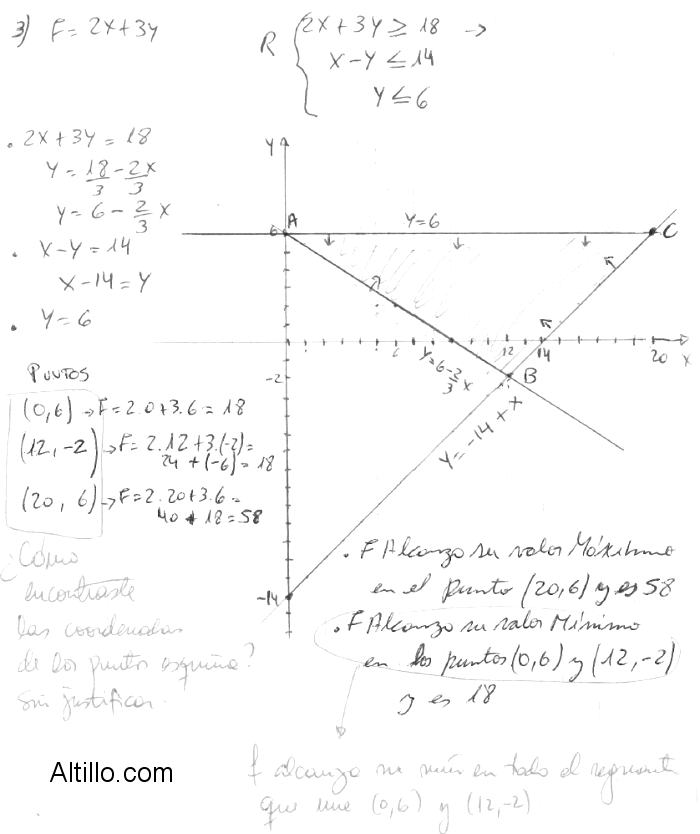 3) F = 2x+3y
R { 2x+3y ≥ 18 →
x-y ≤ 14
y ≤ 6
. 2x+3y = 18
y = 18/3 - 2x/3
y = 6 - 2/3 x
. x-y = 14
x-14 = y
. y = 6
y
6
A
y=6
C
-2
6
12
14
20
x
y=6-2/3 x
B
y = -14 + x
-14
PUNTOS
(0,6) → F = 2.0+3.6 = 18
(12,-2) → F = 2.12+3.(-2) =
24 + (-6) = 18
(20, 6) → F = 2.20+3.6 =
40 + 18 = 58
¿Cómo
encontraste
las coordenadas
de los puntos esquina?
Sin justificar.
. F Alcanza su valor Máximo
en el punto (20,6) y es 58
. F Alcanza su valor Mínimo
en los puntos (0,6) y (12,-2)
y es 18
f alcanza su mín en todo el segmento
que une (0,6) y (12,-2)
Altillo.com